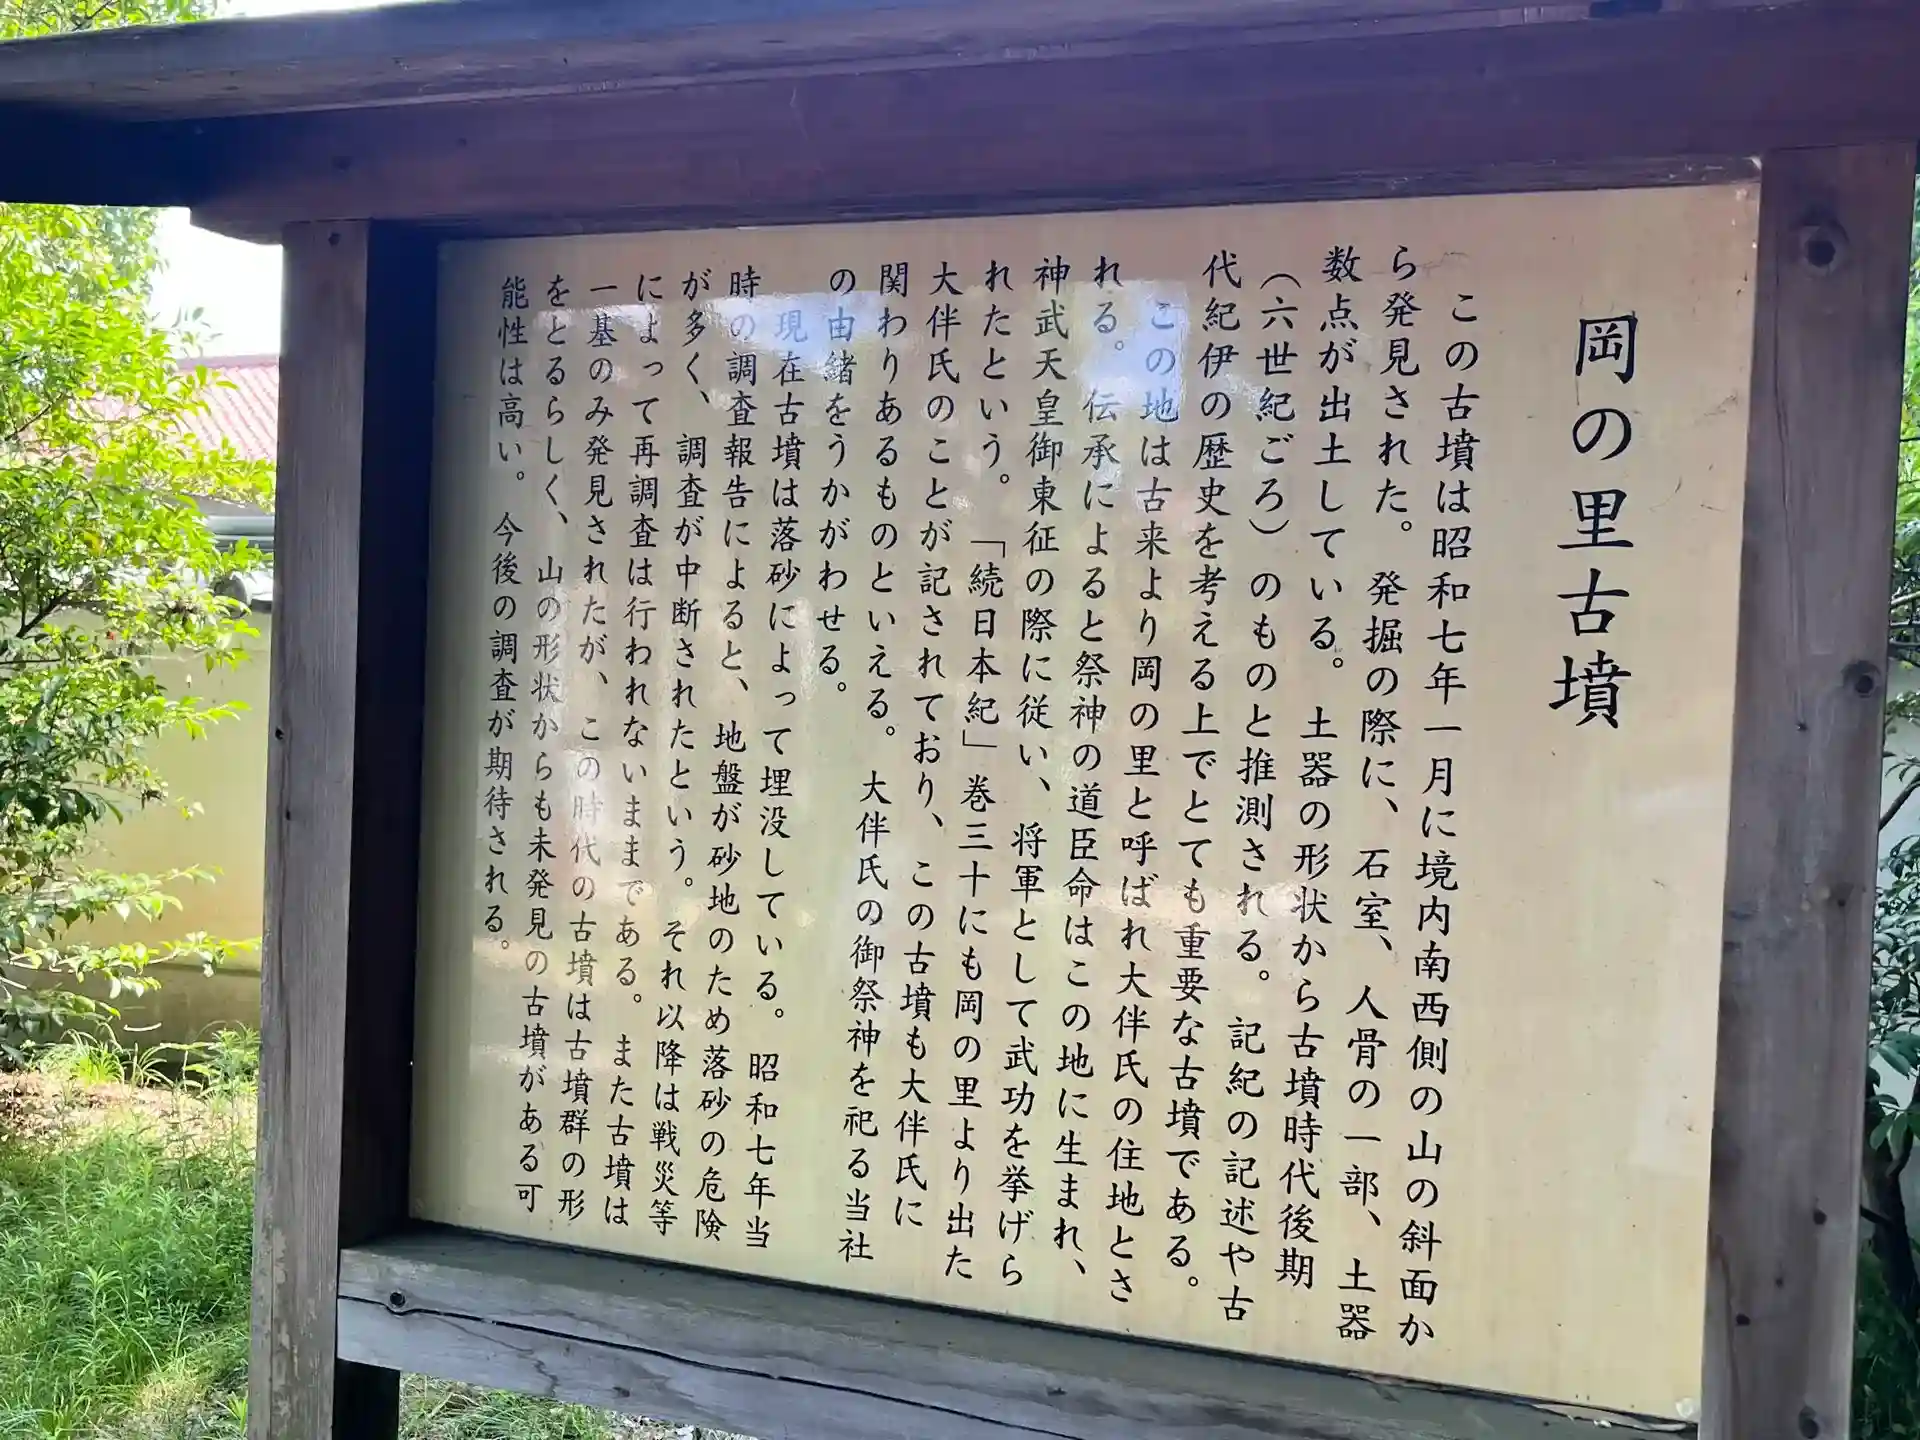 岡の里古墳
この古墳は昭和七年一月に境内南西側の山の斜面か
ら発見された。発掘の際に、石室、人骨の一部、土器
数点が出土している。土器の形状から古墳時代後期
（六世紀ごろ）のものと推測される。記紀の記述や古
代紀伊の歴史を考える上でとても重要な古墳である。
この地は古来より岡の里と呼ばれ大伴氏の住地とさ
れる。伝承によると祭神の道臣命はこの地に生まれ、
神武天皇御東征の際に従い、将軍として武功を挙げら
れたという。「続日本紀」巻三十にも岡の里より出た
大伴氏のことが記されており、この古墳も大伴氏に
関わりあるものといえる。大伴氏の御祭神を祀る当社
の由緒をうかがわせる。
現在古墳は落砂によって埋没している。昭和七年当
時の調査報告によると、地盤が砂地のため落砂の危険
が多く、調査が中断されたという。それ以降は戦災等
によって再調査は行われないままである。また古墳は
一基のみ発見されたが、この時代の古墳は古墳群の形
をとるらしく、山の形状からも未発見の古墳がある可
能性は高い。今後の調査が期待される。